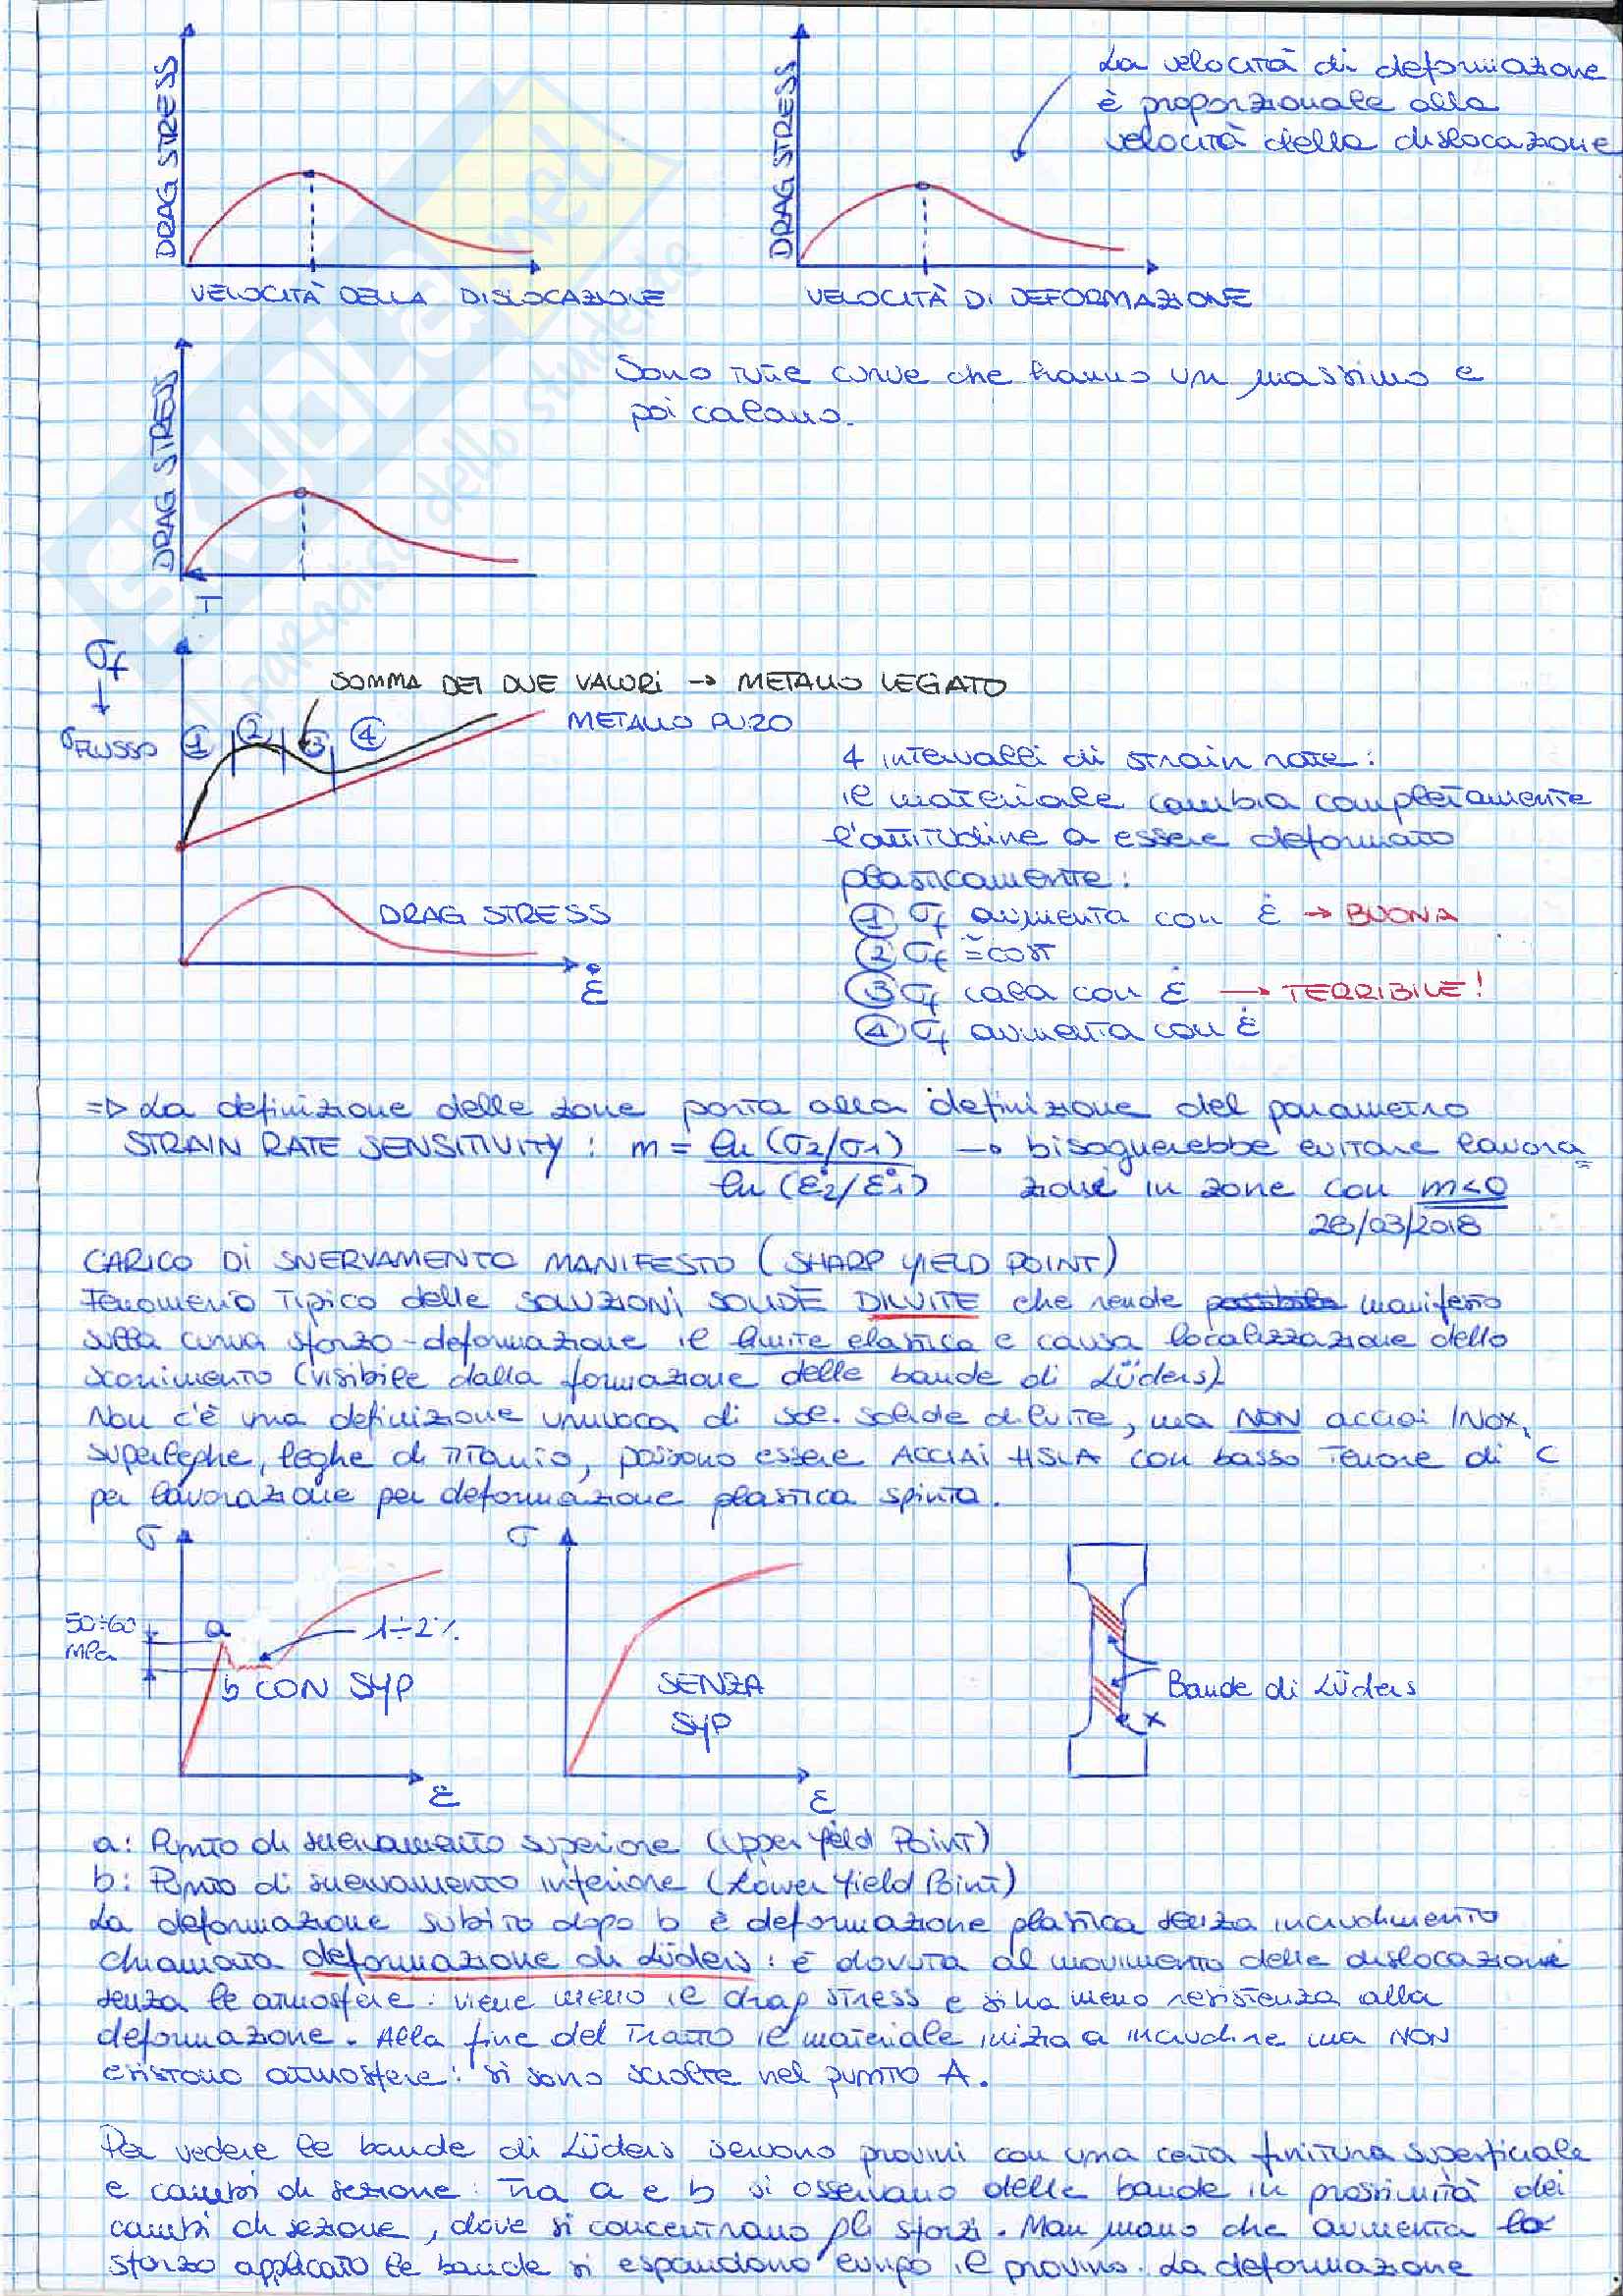 DRAG STRESS
VELOCITÀ DELLA DISLOCAZIONE
DRAG STRESS
VELOCITÀ DI DEFORMAZIONE
La velocità di deformazione
è proporzionale alla
velocità della dislocazione
DRAG STRESS
T
Sono tutte curve che hanno un massimo e
poi calano.
σf
↓
σFLUSSO
SOMMA DEI DUE VALORI → METALLO LEGATO
METALLO PURO
① ② ③ ④
DRAG STRESS
ε̇
4 intervalli di strain rate:
il materiale cambia completamente
l'attitudine a essere deformato
plasticamente:
① σf aumenta con ε̇ → BUONA
② σf ≅ cost
③ σf cala con ε̇ → TERRIBILE!
④ σf aumenta con ε̇
⇒ La definizione delle zone porta alla definizione del parametro
STRAIN RATE SENSITIVITY: m = ln (σ2/σ1) / ln (ε̇2/ε̇1) → bisognerebbe evitare lavora=
zioni in zone con m<0
28/03/2018
CARICO DI SNERVAMENTO MANIFESTO (SHARP YIELD POINT)
Fenomeno tipico delle SOLUZIONI SOLIDE DILUITE che rende manifesto
sulla curva sforzo-deformazione il limite elastico e causa localizzazione dello
scorrimento (visibile dalla formazione delle bande di Lüders).
Non c'è una definizione univoca di sol. solide diluite, ma NON acciai INOX,
superleghe, leghe di Titanio, possono essere ACCIAI HSLA con basso tenore di C
per lavorazione per deformazione plastica spinta.
σ
50÷60
MPa
a
1÷2%
b CON SYP
ε
σ
SENZA
SYP
ε
Bande di Lüders
x
a: Punto di snervamento superiore (Upper Yield Point)
b: Punto di snervamento inferiore (Lower Yield Point)
La deformazione subito dopo b è deformazione plastica senza incrudimento
chiamata deformazione di Lüders: è dovuta al movimento delle dislocazioni
senza le atmosfere: viene meno il drag stress e si ha meno resistenza alla
deformazione. Alla fine del tratto il materiale inizia a incrudire ma NON
esistono atmosfere: si sono sciolte nel punto A.
Per vedere le bande di Lüders servono provini con una certa finitura superficiale
e cambi di sezione: tra a e b si osservano delle bande in prossimità dei
cambi di sezione, dove si concentrano gli sforzi. Man mano che aumenta lo
sforzo applicato le bande si espandono lungo il provino. La deformazione